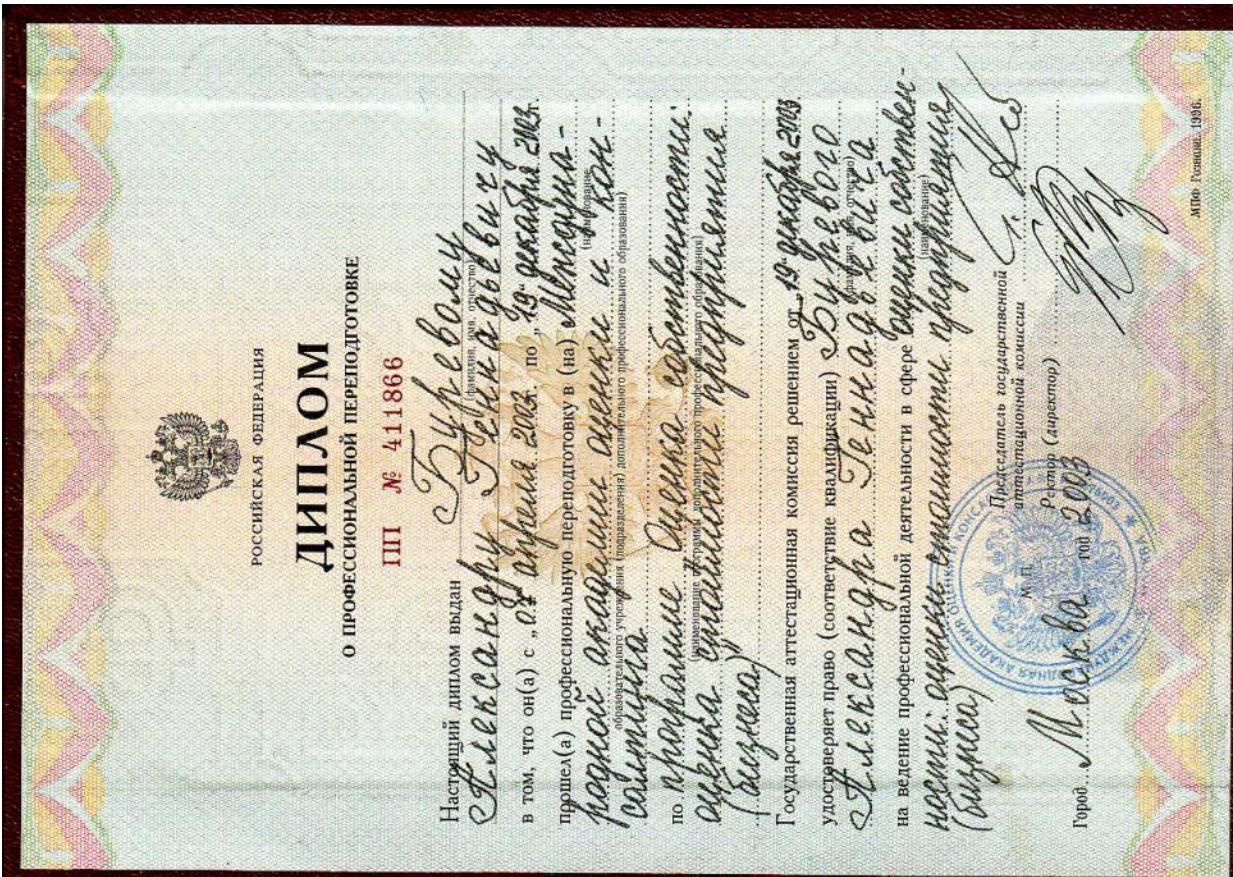 РОССИЙСКАЯ ФЕДЕРАЦИЯ
ДИПЛОМ
О ПРОФЕССИОНАЛЬНОЙ ПЕРЕПОДГОТОВКЕ
ПП № 411866
Настоящий диплом выдан Буревому
(фамилия, имя, отчество)
Александру Геннадьевичу
в том, что он(а) с „07 апреля 2003г. по „19" декабря 2003г.
прошел(а) профессиональную переподготовку в (на) Междуна-
(наименование
родной академии оценки и кон-
образовательного учреждения (подразделения) дополнительного профессионального образования)
салтинга
по программе „Оценка собственности:
(наименование программы дополнительного профессионального образования)
оценка стоимости предприятия
(бизнеса)"
Государственная аттестационная комиссия решением от „19" декабря 2003
удостоверяет право (соответствие квалификации) Буревого
(фамилия, имя, отчество)
Александра Геннадьевича
на ведение профессиональной деятельности в сфере оценки собствен-
(наименование)
ности: оценки стоимости предприятия
(бизнеса)
Председатель государственной
аттестационной комиссии
М. П. Ректор (директор)
Город Москва год 2003
МПФ Гознака. 1996.